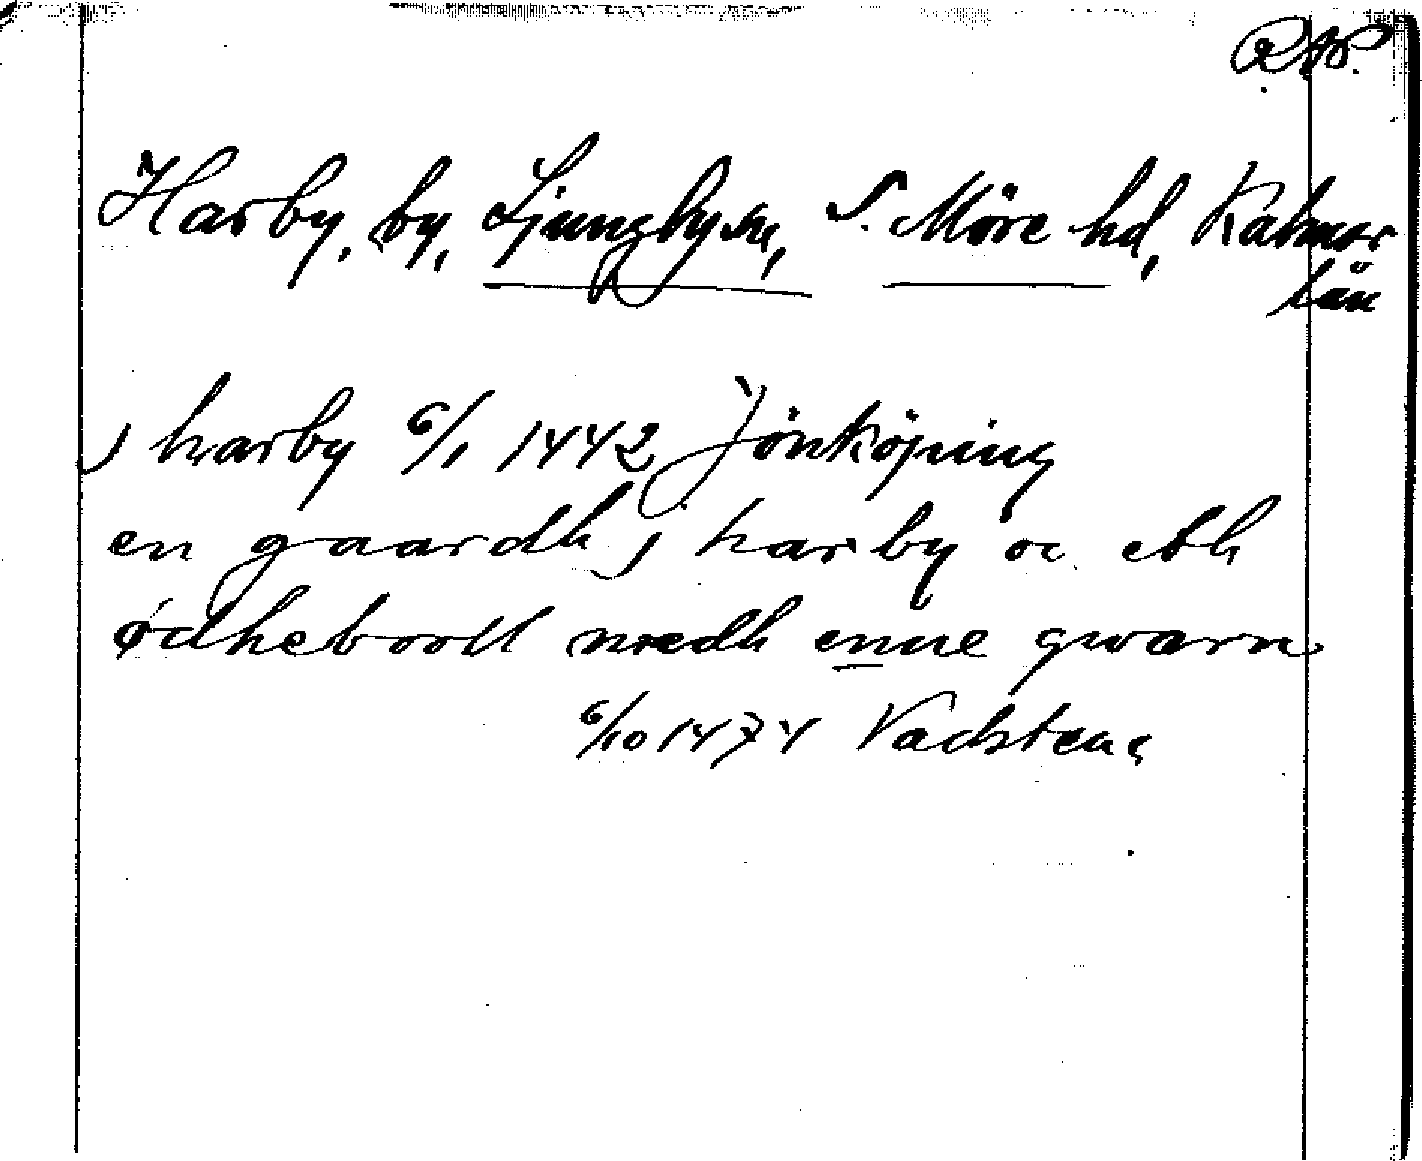 Harby, by, Ljungby sn, S. Möre hd, Kalmar
län
j harby 6/1 1442 Jönköping
en gaardh j harby oc eth
ødheboell medh enne qwærn
6/10 1474 Vadstena